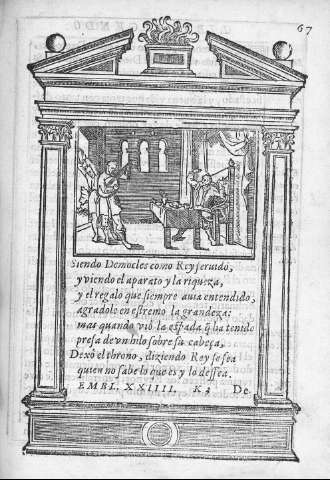 67
Siendo Democles como Rey seruido,
y viendo el aparato y la riqueza,
y el regalo que siempre auia entendido,
agradole en estremo la grandeza:
mas quando vio la espada q̃ ha tenido
presa de vn hilo sobre su cabeça,
Dexò el throno, diziendo Rey se sea
quien no sabe lo que es y lo dessea.
EMBL. XXIIII. K 3 De